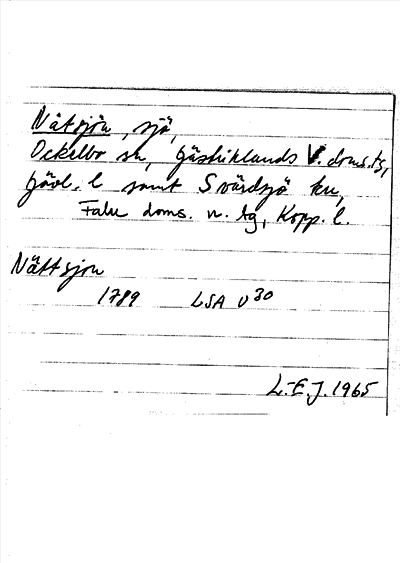 Nätsjön, sjö,
Ockelbo sn, Gästriklands V. doms.tg,
Gävl. l samt Svärdsjö kn,
Falu doms. n. tg, Kopp. l.
Nättsjon
1789 LSA U30
L-E.J. 1965